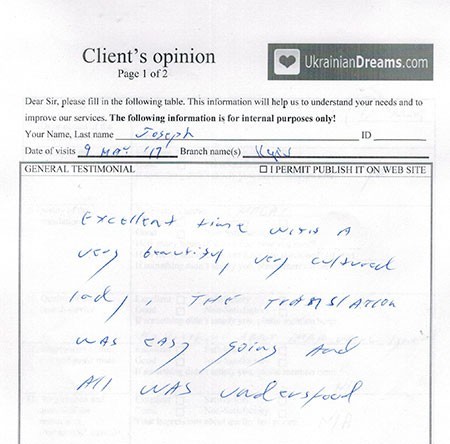 Client's opinion
Page 1 of 2
UkrainianDreams.com
Dear Sir, please fill in the following table. This information will help us to understand your needs and to
improve our services. The following information is for internal purposes only!
Your Name, Last name Joseph ID
Date of visits 9 MAY '17 Branch name(s) Kyiv
GENERAL TESTIMONIAL ☐ I PERMIT PUBLISH IT ON WEB SITE
Excellent time with A
very beautiful, very cultured
lady, THE TRANSLATION
WAS EASY going and
All WAS understood